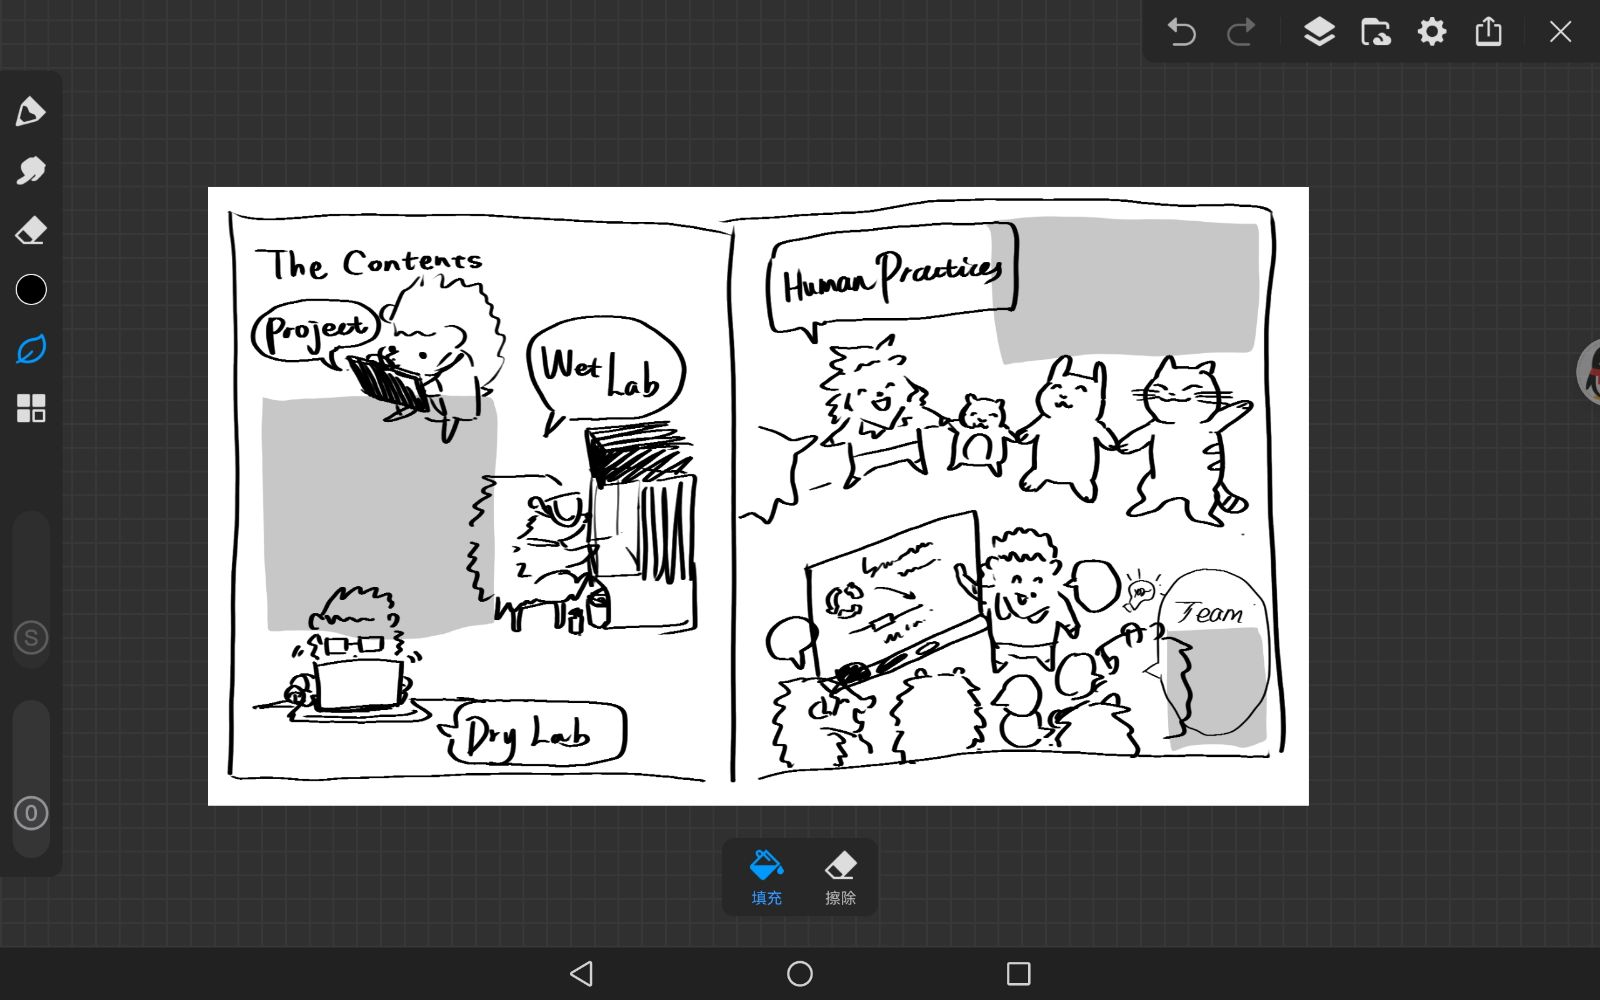 The Contents
Project
Wet Lab
Dry Lab
Human Practices
Team
S
0
填充
擦除